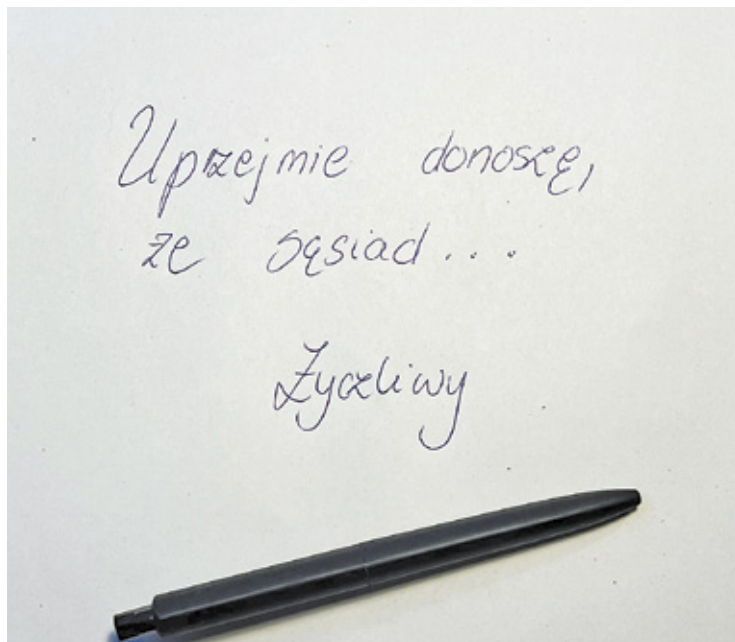 Uprzejmie donoszę,
że sąsiad...
Życzliwy